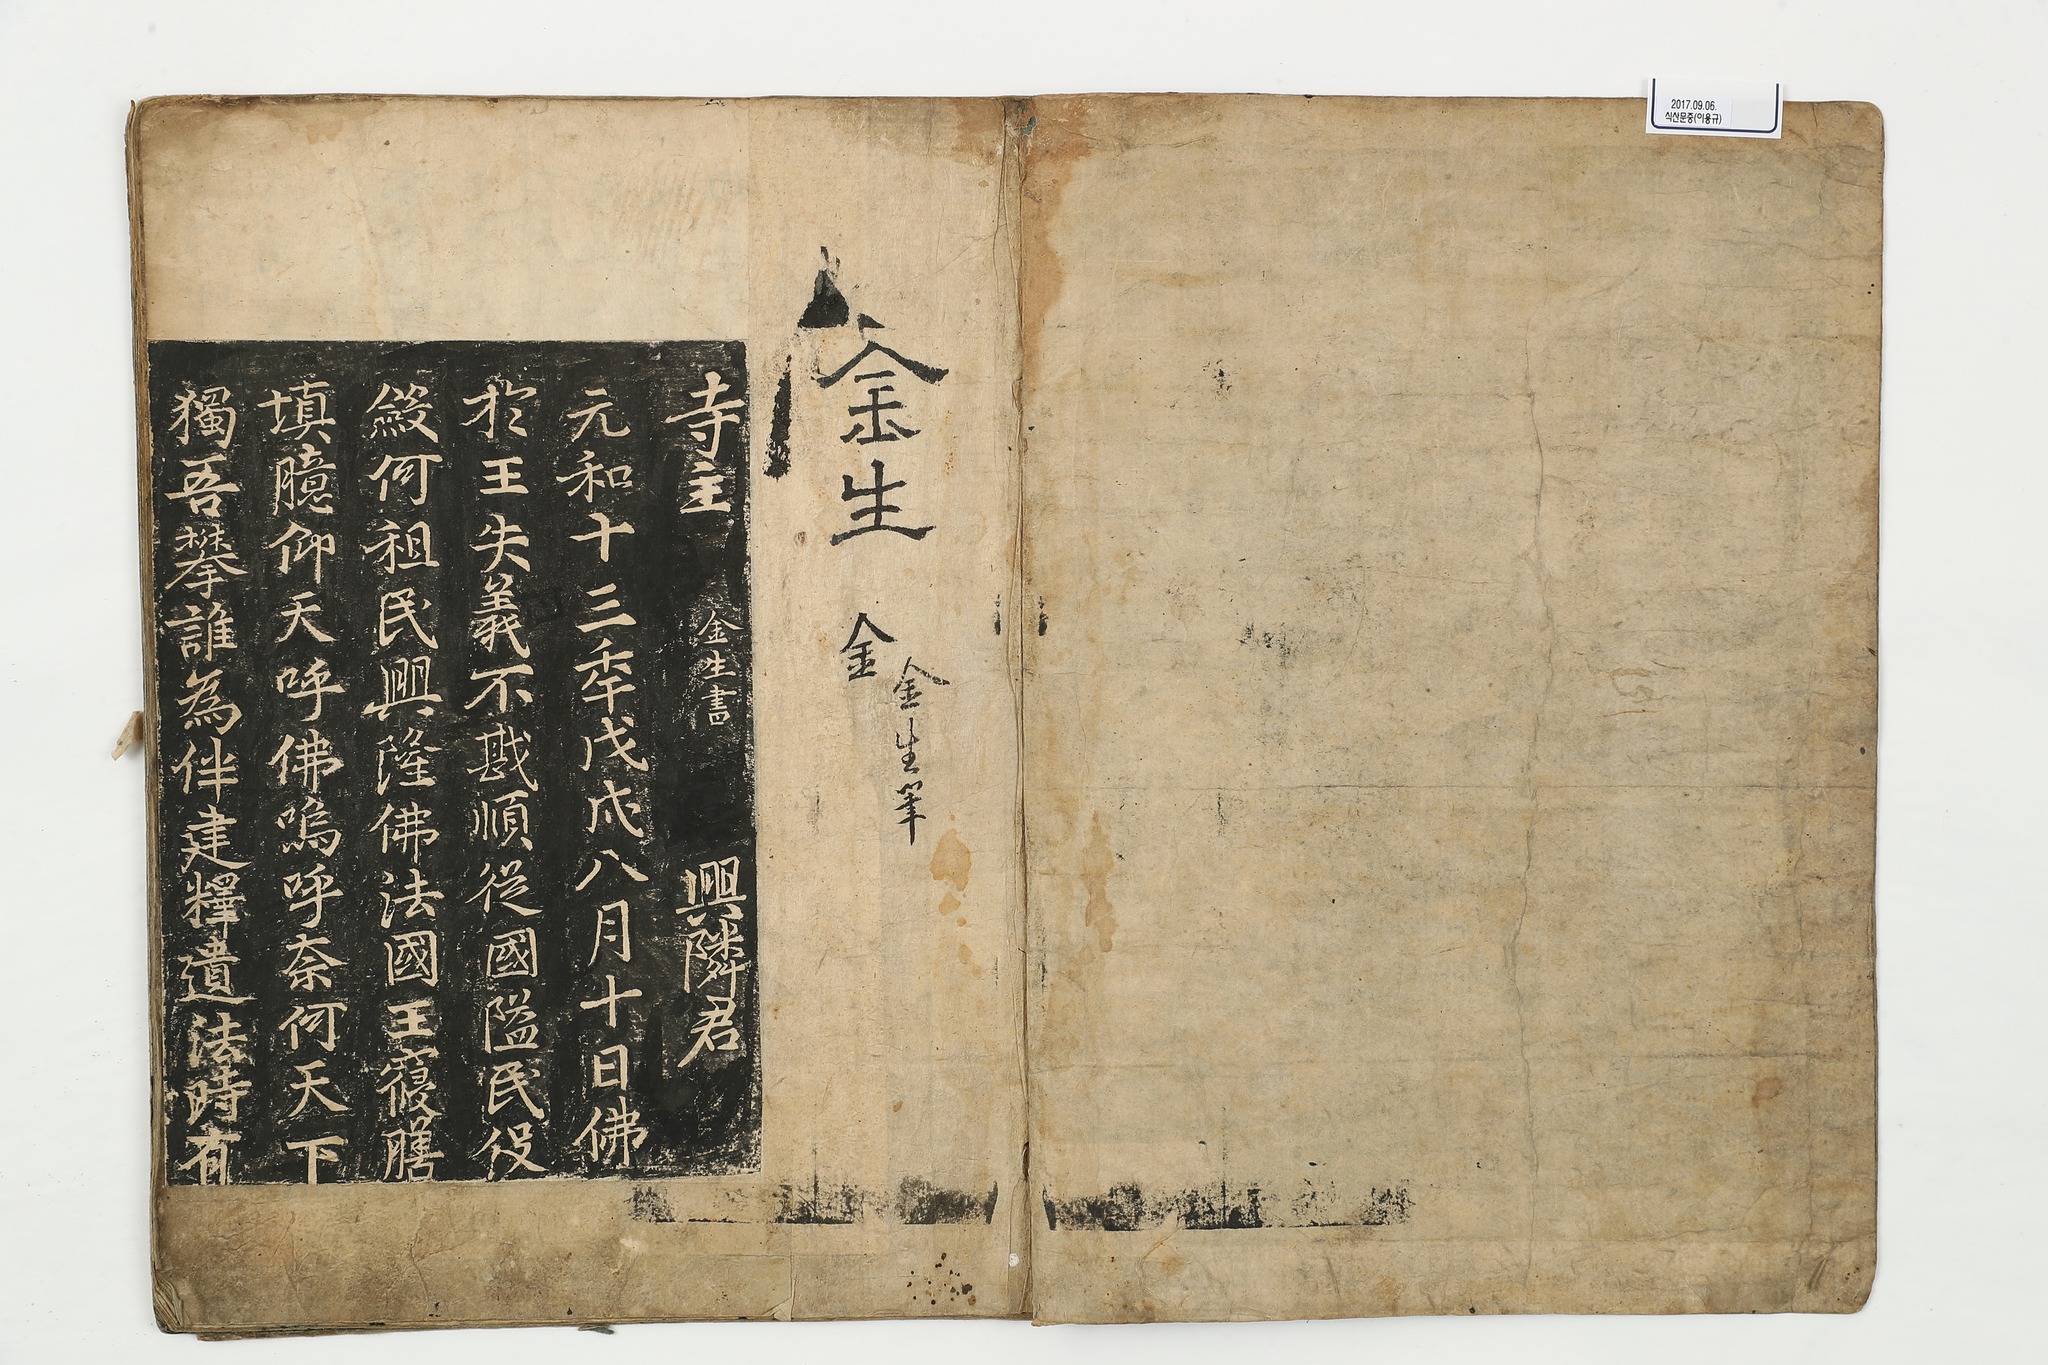 2017.09.06.
식산문중(이용규)
金生
金
金生筆
寺主 金生書 興隣君
元和十三秊戊戌八月十日佛
於王失義不戡順從國隘民役
斂何祖民興隆佛法國王寢膳
填臆仰天呼佛嗚呼奈何天下
獨吾攀誰為伴建釋遺法時有